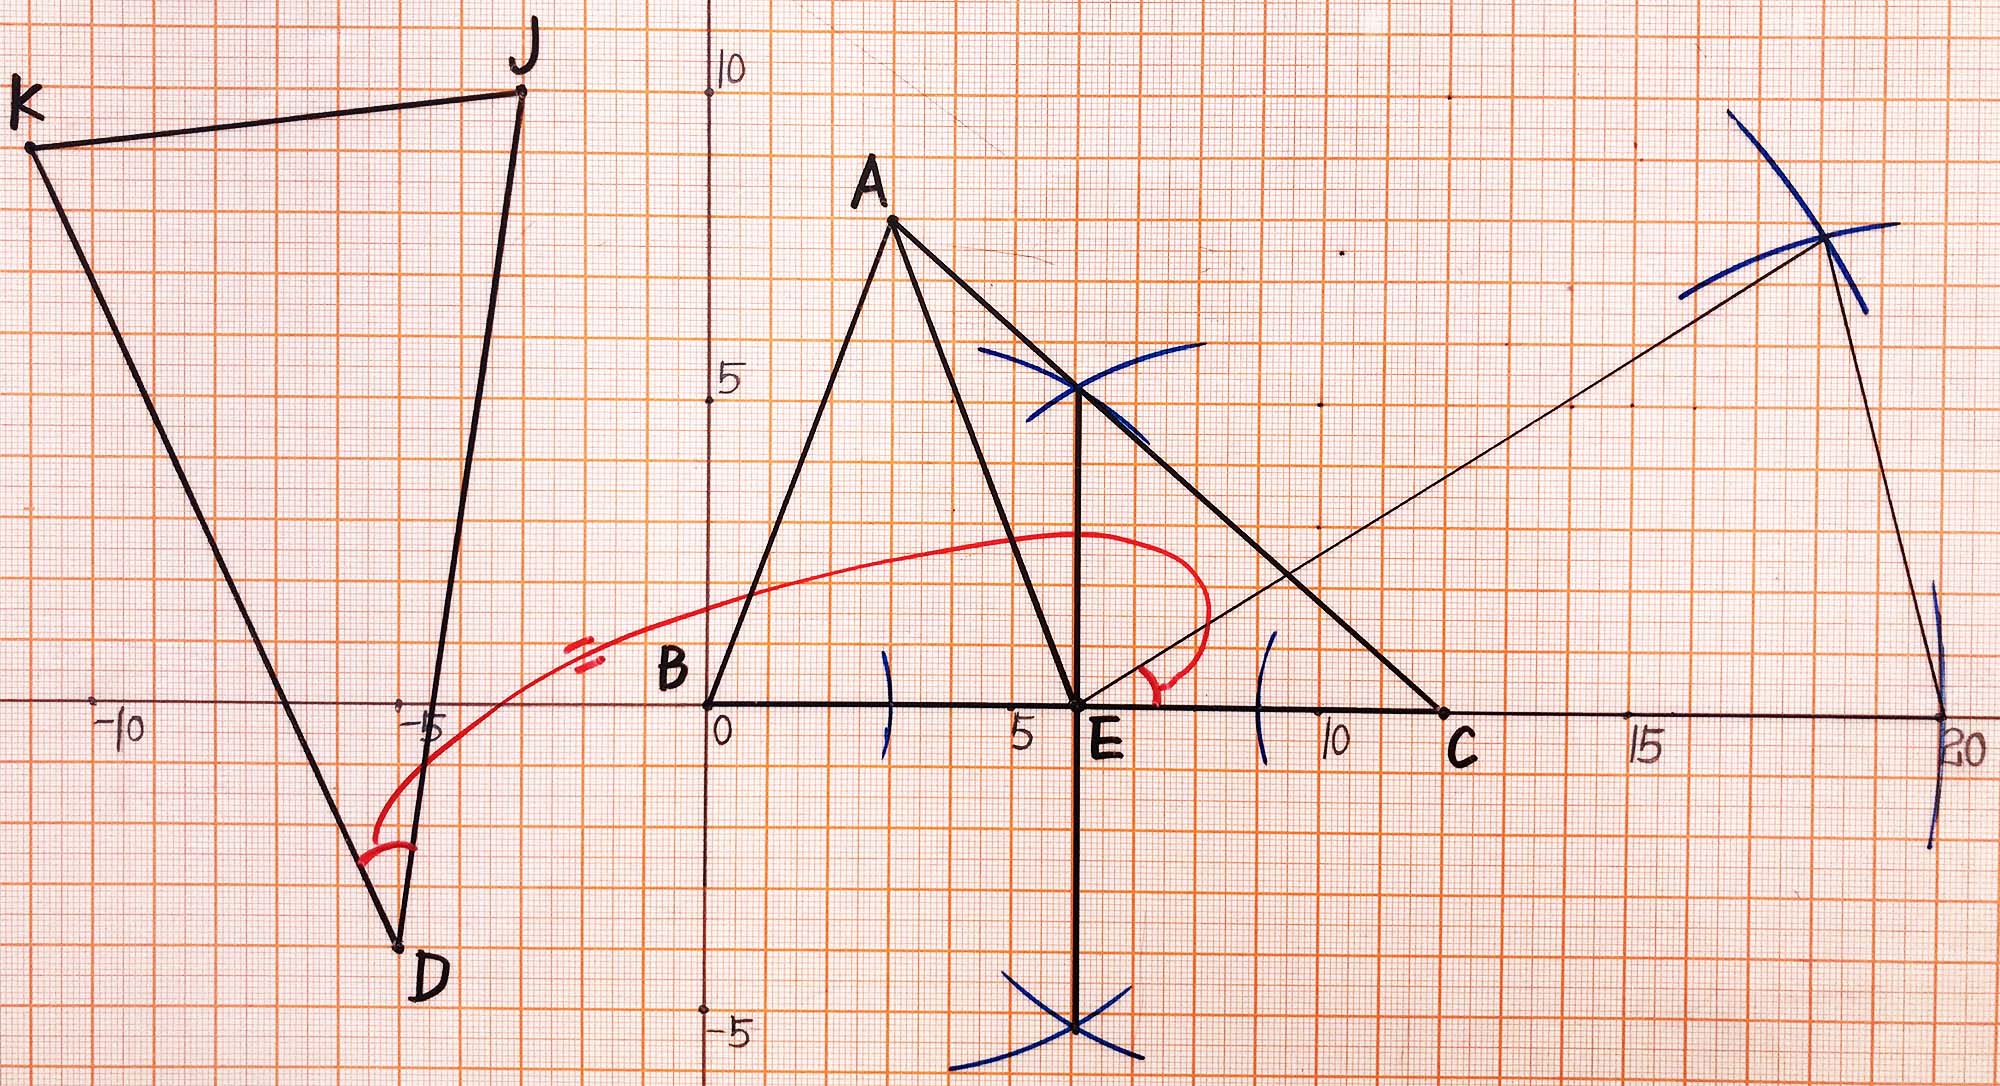 J
10
K
A
5
B
-10
-5
0
5
E
10
C
15
20
D
-5